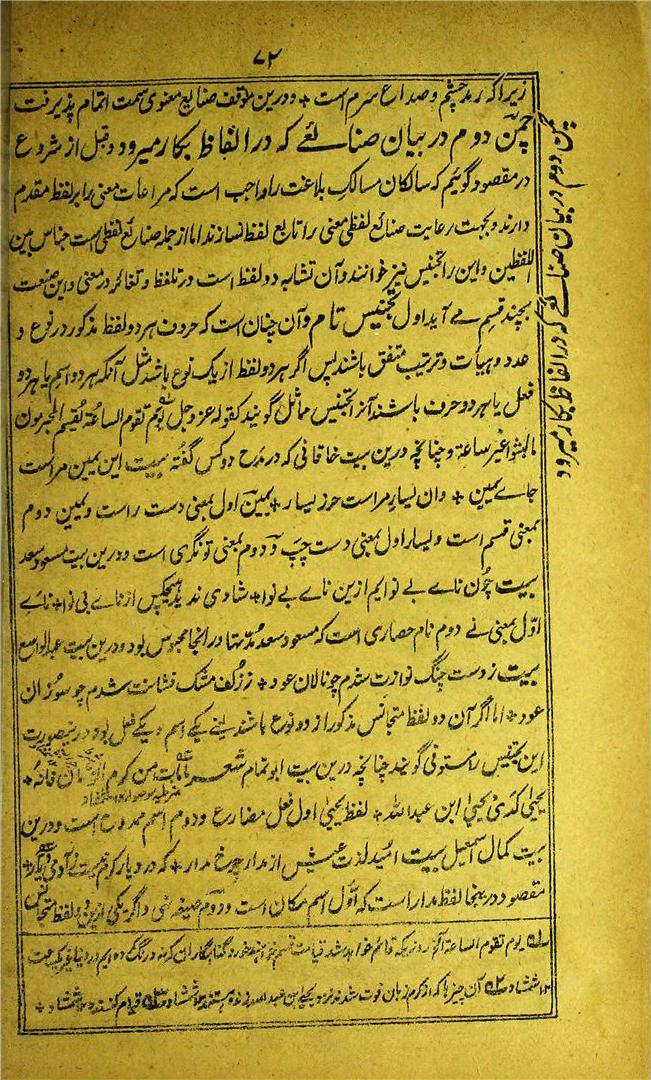 ۷۲
زیراکہ رمد چشم و صداع سرم است + و درین موقف صنایع معنوی سمت اتمام پذیرفت
چمن دوم در بیان صنائعے کہ در الفاظ بکار میرود و قبل از شروع
در مقصود گوئیم کہ سالکان مسالک بلاغت را واجب است کہ مراعات معنی را بر لفظ مقدم
دارند و بجہت رعایت صنائع لفظی معنی را تابع لفظ نسازند اما از جملہ صنائع لفظی است جناس بین
اللفظین و این را تجنیس نیز خوانند و آن تشابہ دو لفظ است در تلفظ و تغائر در معنی و این صنعت
بچند قسم مے آید اول تجنیس تام و آن چنان است کہ حروف ہر دو لفظ مذکور در نوع و
عدد و ہیأت و ترتیب متفق باشند پس اگر ہر دو لفظ از یک نوع باشند مثل آنکہ ہر دو اسم یا ہر دو
فعل یا ہر دو حرف باشند آنرا تجنیس مماثل گویند کقولہ عز و جل یوم تقوم الساعۃ یقسم المجرمون
مالبثوا غیر ساعۃ و چنانچہ درین بیت خاقانی کہ در مدح دو کس گفتہ بیت این یمین مراست
جاے یمین + وان یسار مراست حرز یسار + یمین اول بمعنی دست راست و یمین دوم
بمعنی قسم است و یسار اول بمعنی دست چپ و دوم بمعنی تونگری است و درین بیت مسعود سعد
بیت چون ناے بے نوایم ازین ناے بے نوا + شادی ندید ہیچکس از ناے بی نوا + ناے
اول بمعنی نے دوم نام حصاری است کہ مسعود سعد مدتہا در انجا محبوس بود و درین بیت عبدالواسع
بیت ز دست چنگ نوازت شدم چو نالان عود + ز زکف مشک فشانت شدم چو سوزان
عود + اما اگر آن دو لفظ متجانس مذکور از دو نوع باشند یعنے یکے اسم و یکے فعل بود درینصورت
این تجنیس را مستوفی گویند چنانچہ درین بیت ابو تمام شعر مامات من کرم الزمان فانہ +
یحیی لدی یحیی ابن عبداللہ + لفظ یحیی اول فعل مضارع و دوم اسم ممدوح است و درین
بیت کمال اسمعیل بیت امید لذت عیش از مدار چرخ مدار + کہ در دیار کرم نیست ز آدمی دیار +
مقصود درینجا لفظ مدار است کہ اول اسم مکان است و دوم صیغہ نہی و اگر یکی ازین دو لفظ متجانس
یوم تقوم الساعۃ الخ روزیکہ قائم خواہد شد قیامت قسم خواہند خورد گناہگاران کہ نہ درنگ کردہ ایم در دنیا بجز یک ساعت
۱۲ شمشاد آن چیزہا کہ از کرم زبان فوت شدند نزد یحیی ابن عبداللہ زندہ ہستند شمشاد قیام کنند شمشاد +
چمن دوم در بیان صنائعے کہ در الفاظ بکار میرود